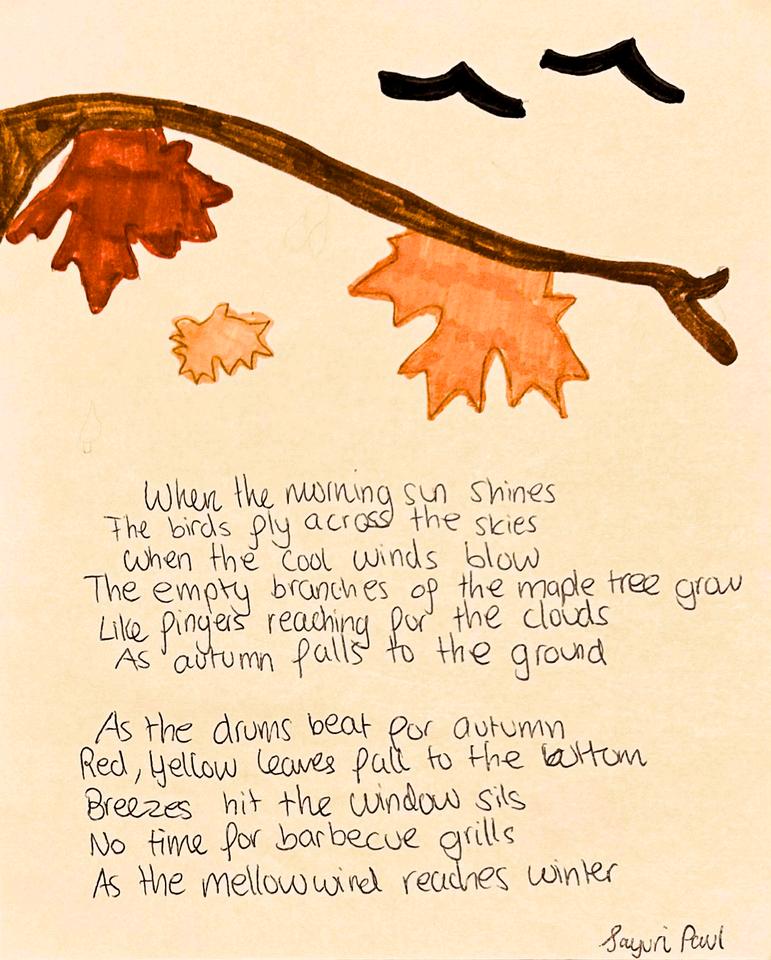 When the morning sun shines
The birds fly across the skies
When the cool winds blow
The empty branches of the maple tree grow
Like fingers reaching for the clouds
As autumn falls to the ground
As the drums beat for autumn
Red, Yellow leaves fall to the bottom
Breezes hit the window sils
No time for barbecue grills
As the mellow wind reaches winter
Sayuri Paul